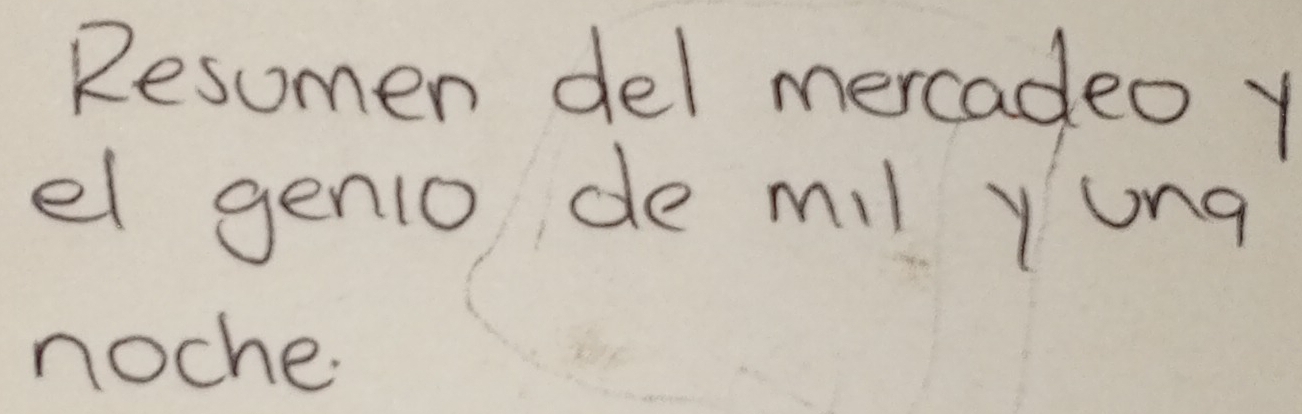 Resumen del mercadeo y
el genio de mil y una
noche.